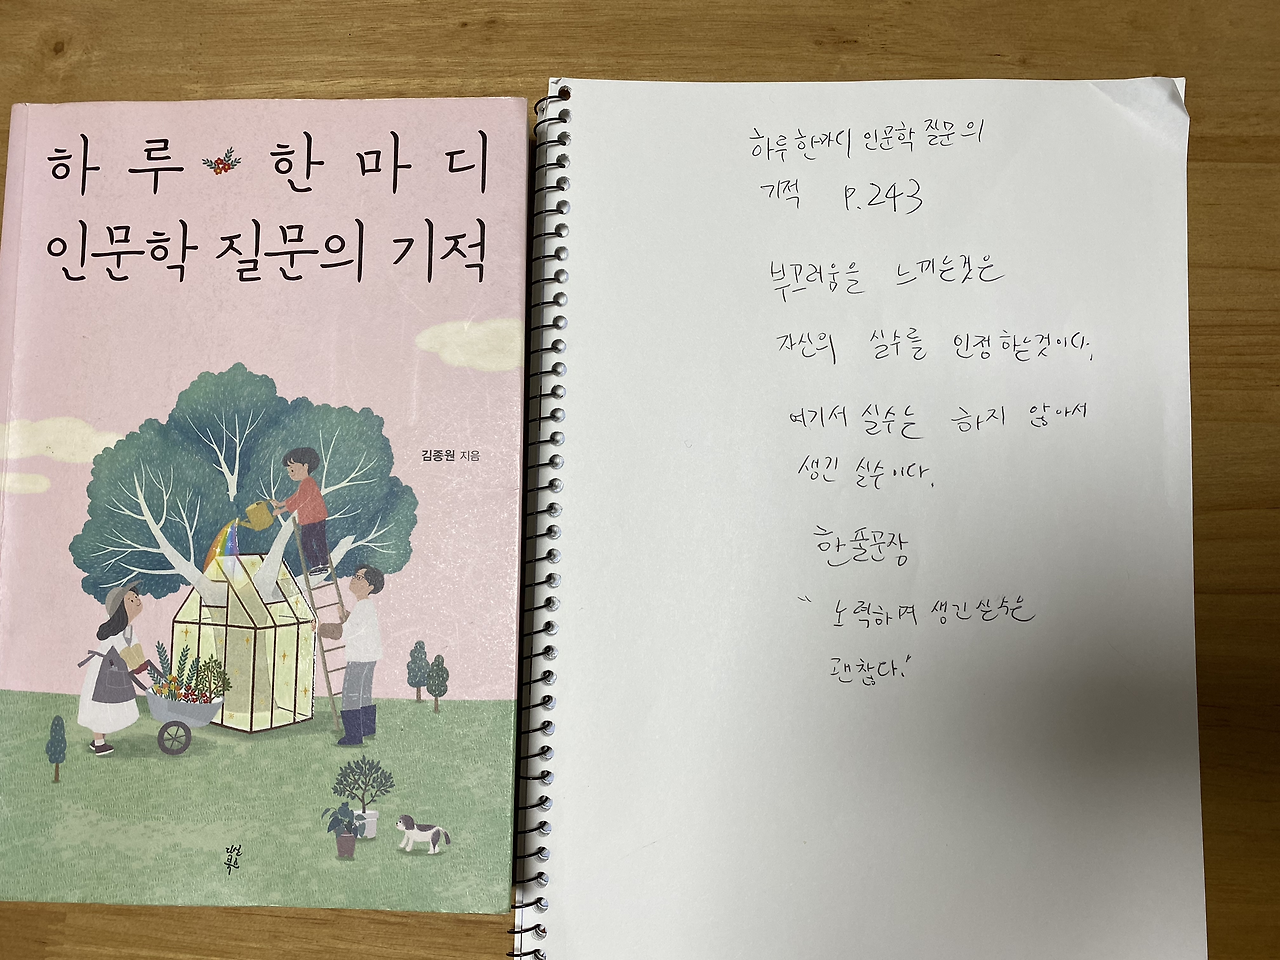 하루 한마디
인문학 질문의 기적
김종원 지음
다산
북스
하루 한마디 인문학 질문의
기적 P.243
부끄러움을 느끼는것은
자신의 실수를 인정하는것이다.
여기서 실수는 하지 않아서
생긴 실수이다.
한줄문장
"노력하며 생긴 실수는
괜찮다."